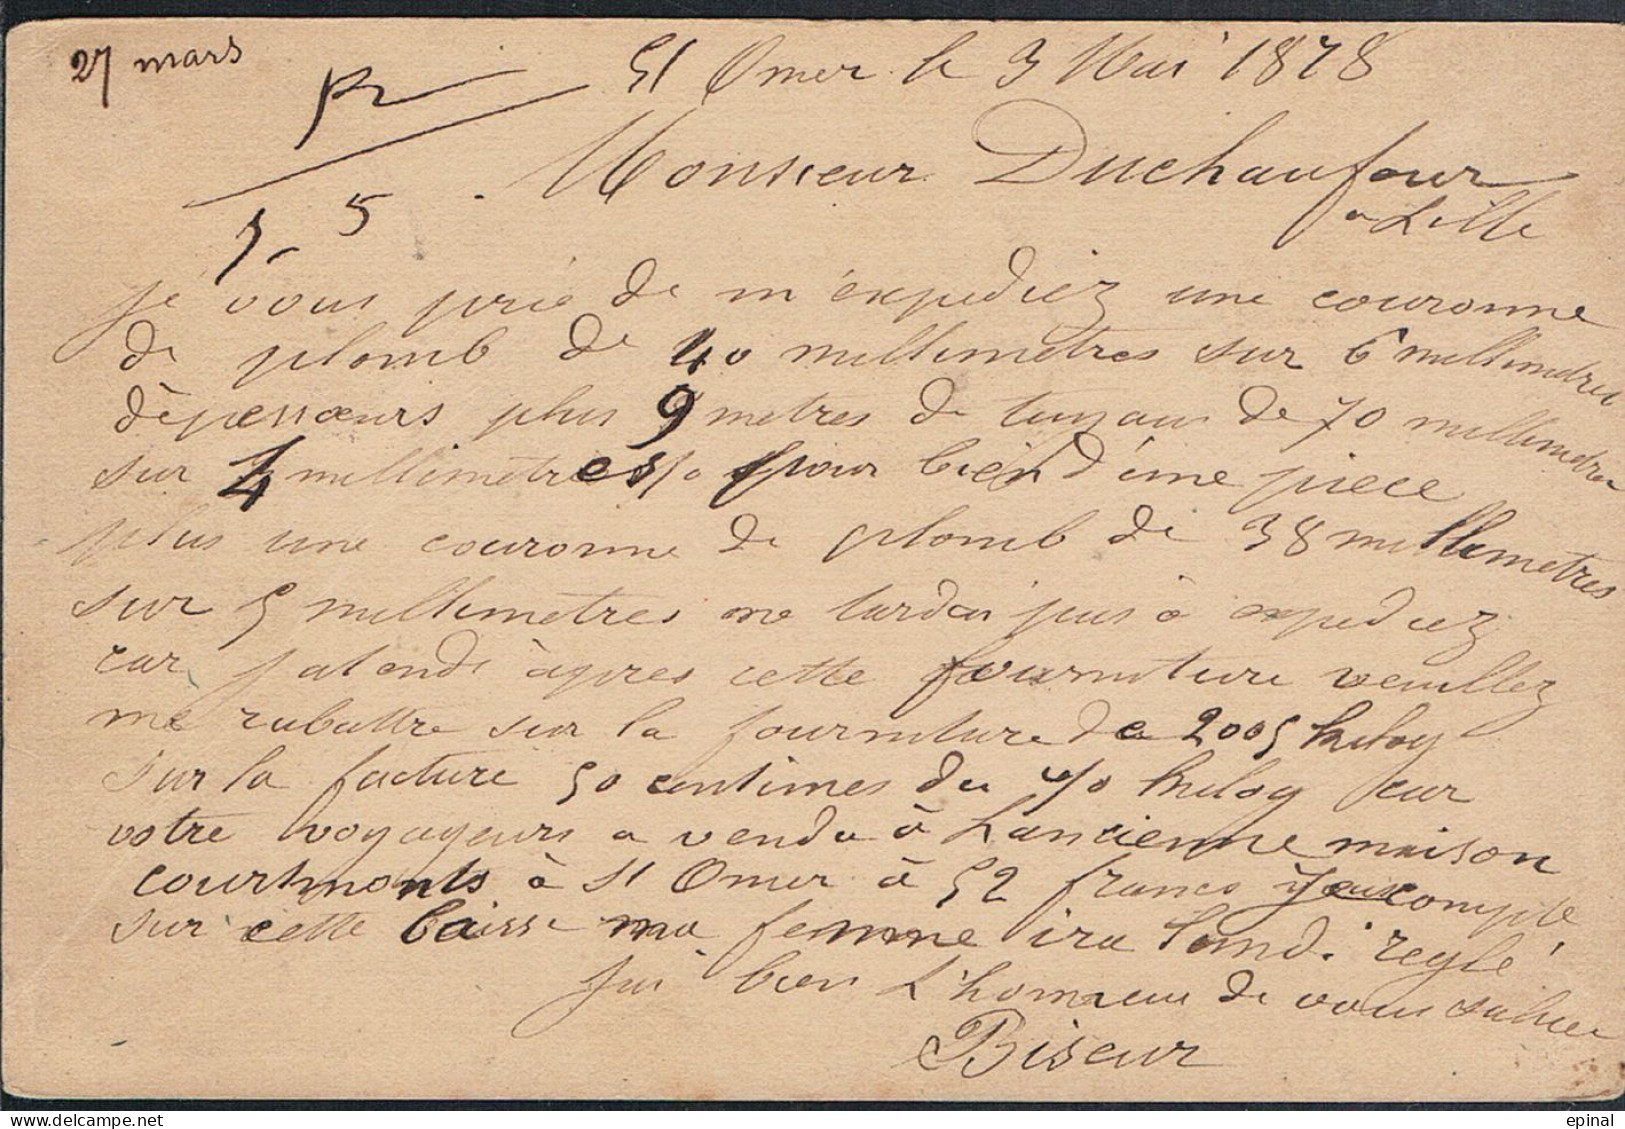 27 mars
St Omer le 3 Mai 1878
5
Monsieur Duchaufour
a Lille
je vous prie de m'expediez une couronne
de plomb de 40 millimetres sur 6 millimetres
dèpesseurs plus 9 metres de tuyau de 70 millimetres
sur 4 millimetres pour bien d'une piece
plus une couronne de plomb de 38 millemetres
sur 5 millemetres me tardai pas à expediez
car j atends àpres cette fourniture veuillez
me rabattre sur la fourniture de 2005 kilog
sur la facture 50 centimes du %o kilog car
votre voyageurs a vendu à Lancienne maison
courtmonts à St Omer à 52 francs compte
sur cette baisse ma femme ira lundi reglé
jai bien L'honneur de vous saluer
Biseur
epinal